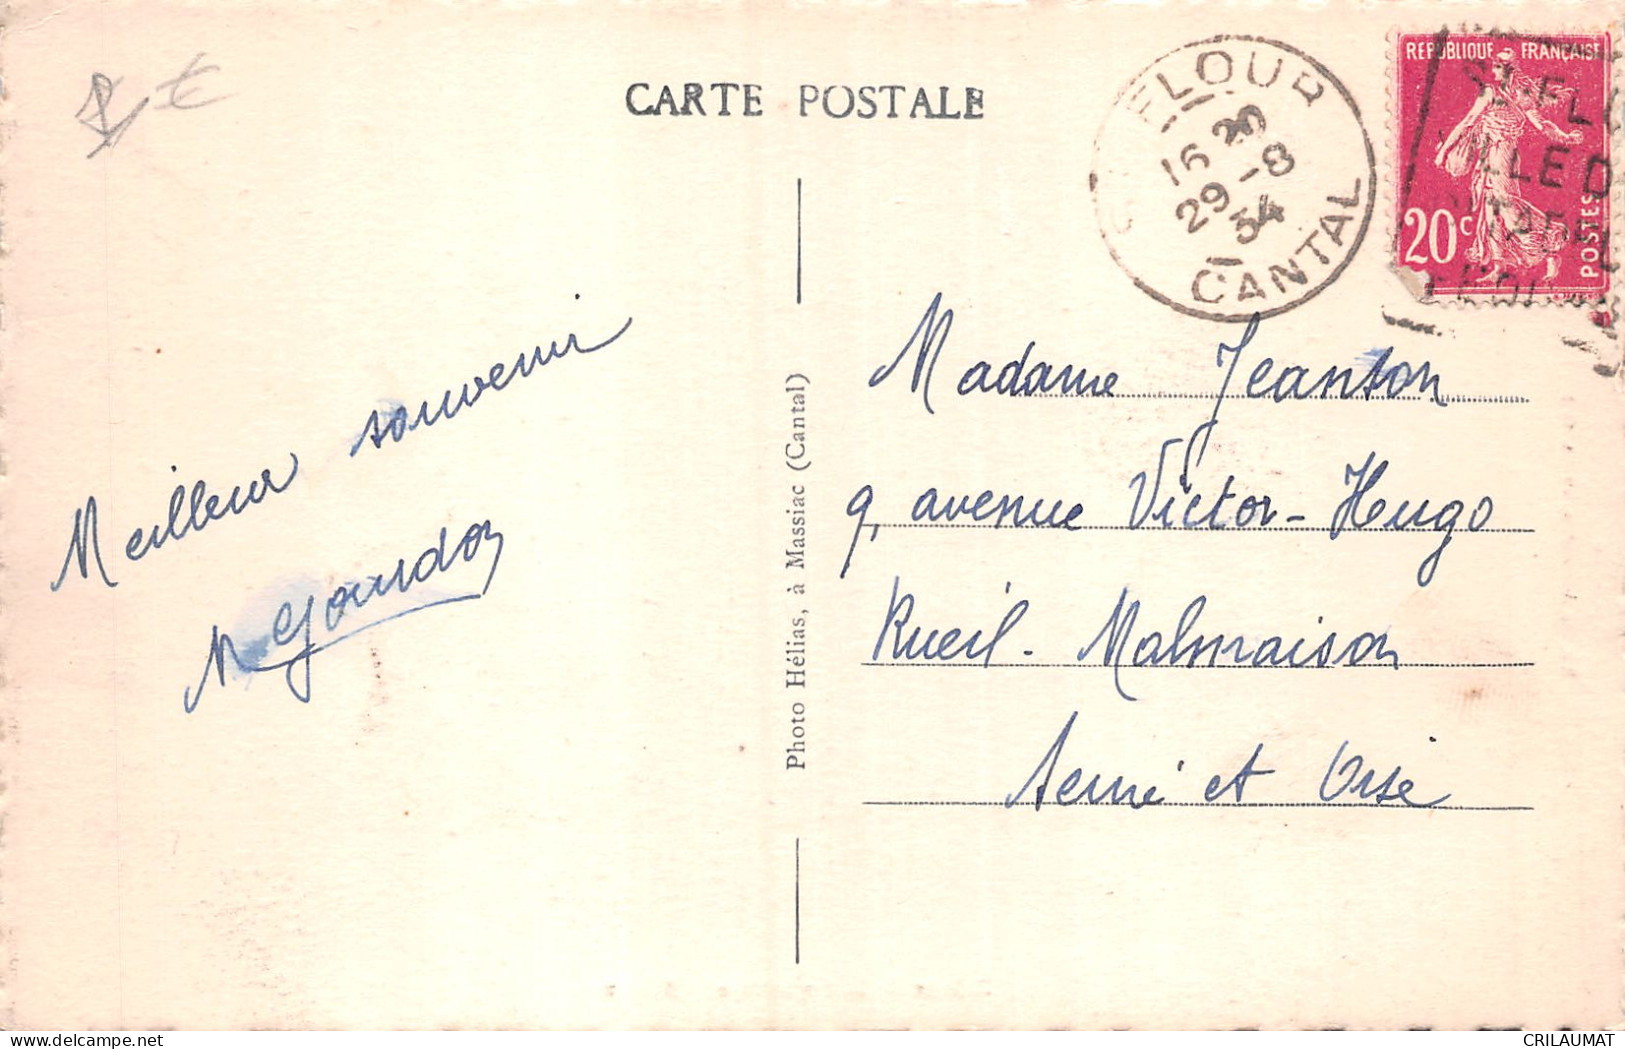 CARTE POSTALE
FLOUR
16 20
29-8
34
CANTAL
REPUBLIQUE FRANÇAISE
20c
POSTES
ST-FLO
VILLE D
Meilleur souvenir
Photo Hélias, à Massiac (Cantal)
Madame Jeanson
9, avenue Victor-Hugo
Rueil-Malmaison
Seine et Oise
CRILAUMAT